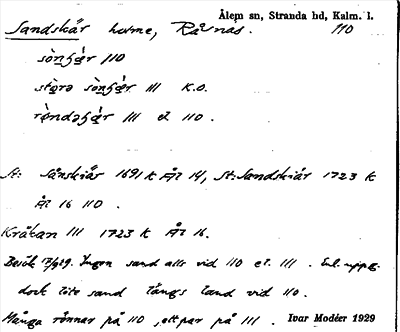 Ålem sn, Stranda hd, Kalm. l.
Sandskär holme, Råsnäs. 110
sònʃæ̀r 110
stọrə sònʃæ̀r 111 K.O.
rọ̀ndəʃæ̀r 111 el 110.
St: Sånskiär 1691 k Ål 14, St: Sandskiär 1723 k
Ål 16 110.
Kråkan 111 1723 k Ål 16.
Besök 17/9 29. Ingen sand alls vid 110 el. 111. Enl. uppg.
dock lite sand längs land vid 110.
Många rönnar på 110, ett par på 111. Ivar Modéer 1929